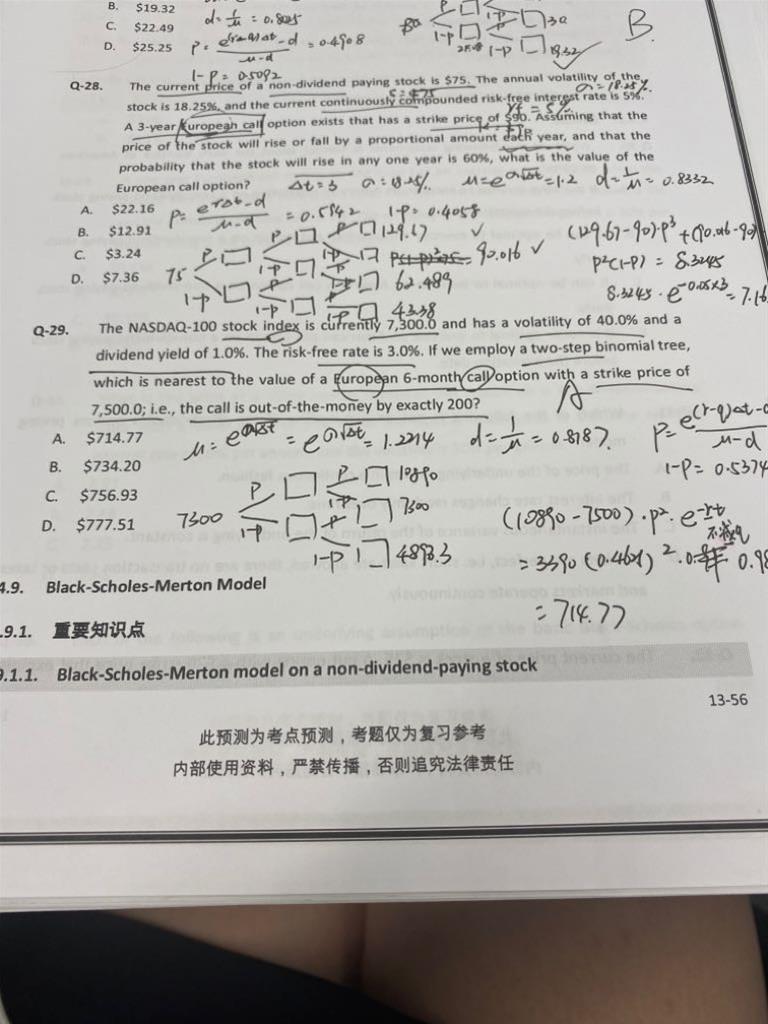 B. $19.32
C. $22.49
D. $25.25
d = 1/u = 0.8025
p = e^(r-q)Δt - d / u-d = 0.4908
1-p = 0.5092
80
30
19.32
B.
Q-28. The current price of a non-dividend paying stock is $75. The annual volatility of the
stock is 18.25%, and the current continuously compounded risk-free interest rate is 5%.
A 3-year European call option exists that has a strike price of $90. Assuming that the
price of the stock will rise or fall by a proportional amount each year, and that the
probability that the stock will rise in any one year is 60%, what is the value of the
European call option?
S = $75
σ = 18.25%
rf = 5%
Δt = 3 σ = 18.25% u = e^σ√Δt = 1.2 d = 1/u = 0.8332
A. $22.16
B. $12.91
C. $3.24
D. $7.36
p = e^rΔt - d / u-d = 0.5942 1-p = 0.4058
75
129.67
90.016
62.489
43.38
(129.67-90)·p³ + (90.016-90)
p²(1-p) = 8.3245
8.3245 · e^-0.05×3 = 7.16
Q-29. The NASDAQ-100 stock index is currently 7,300.0 and has a volatility of 40.0% and a
dividend yield of 1.0%. The risk-free rate is 3.0%. If we employ a two-step binomial tree,
which is nearest to the value of a European 6-month call option with a strike price of
7,500.0; i.e., the call is out-of-the-money by exactly 200?
A
A. $714.77
B. $734.20
C. $756.93
D. $777.51
u = e^σ√Δt = e^σ√Δt = 1.2214 d = 1/u = 0.8187
p = e^(r-q)Δt - d / u-d
1-p = 0.5374
7300
10890
7300
4893.3
(10890-7500)·p²·e^-rt
= 714.77
4.9. Black-Scholes-Merton Model
.9.1. 重要知识点
9.1.1. Black-Scholes-Merton model on a non-dividend-paying stock
13-56
此预测为考点预测，考题仅为复习参考
内部使用资料，严禁传播，否则追究法律责任